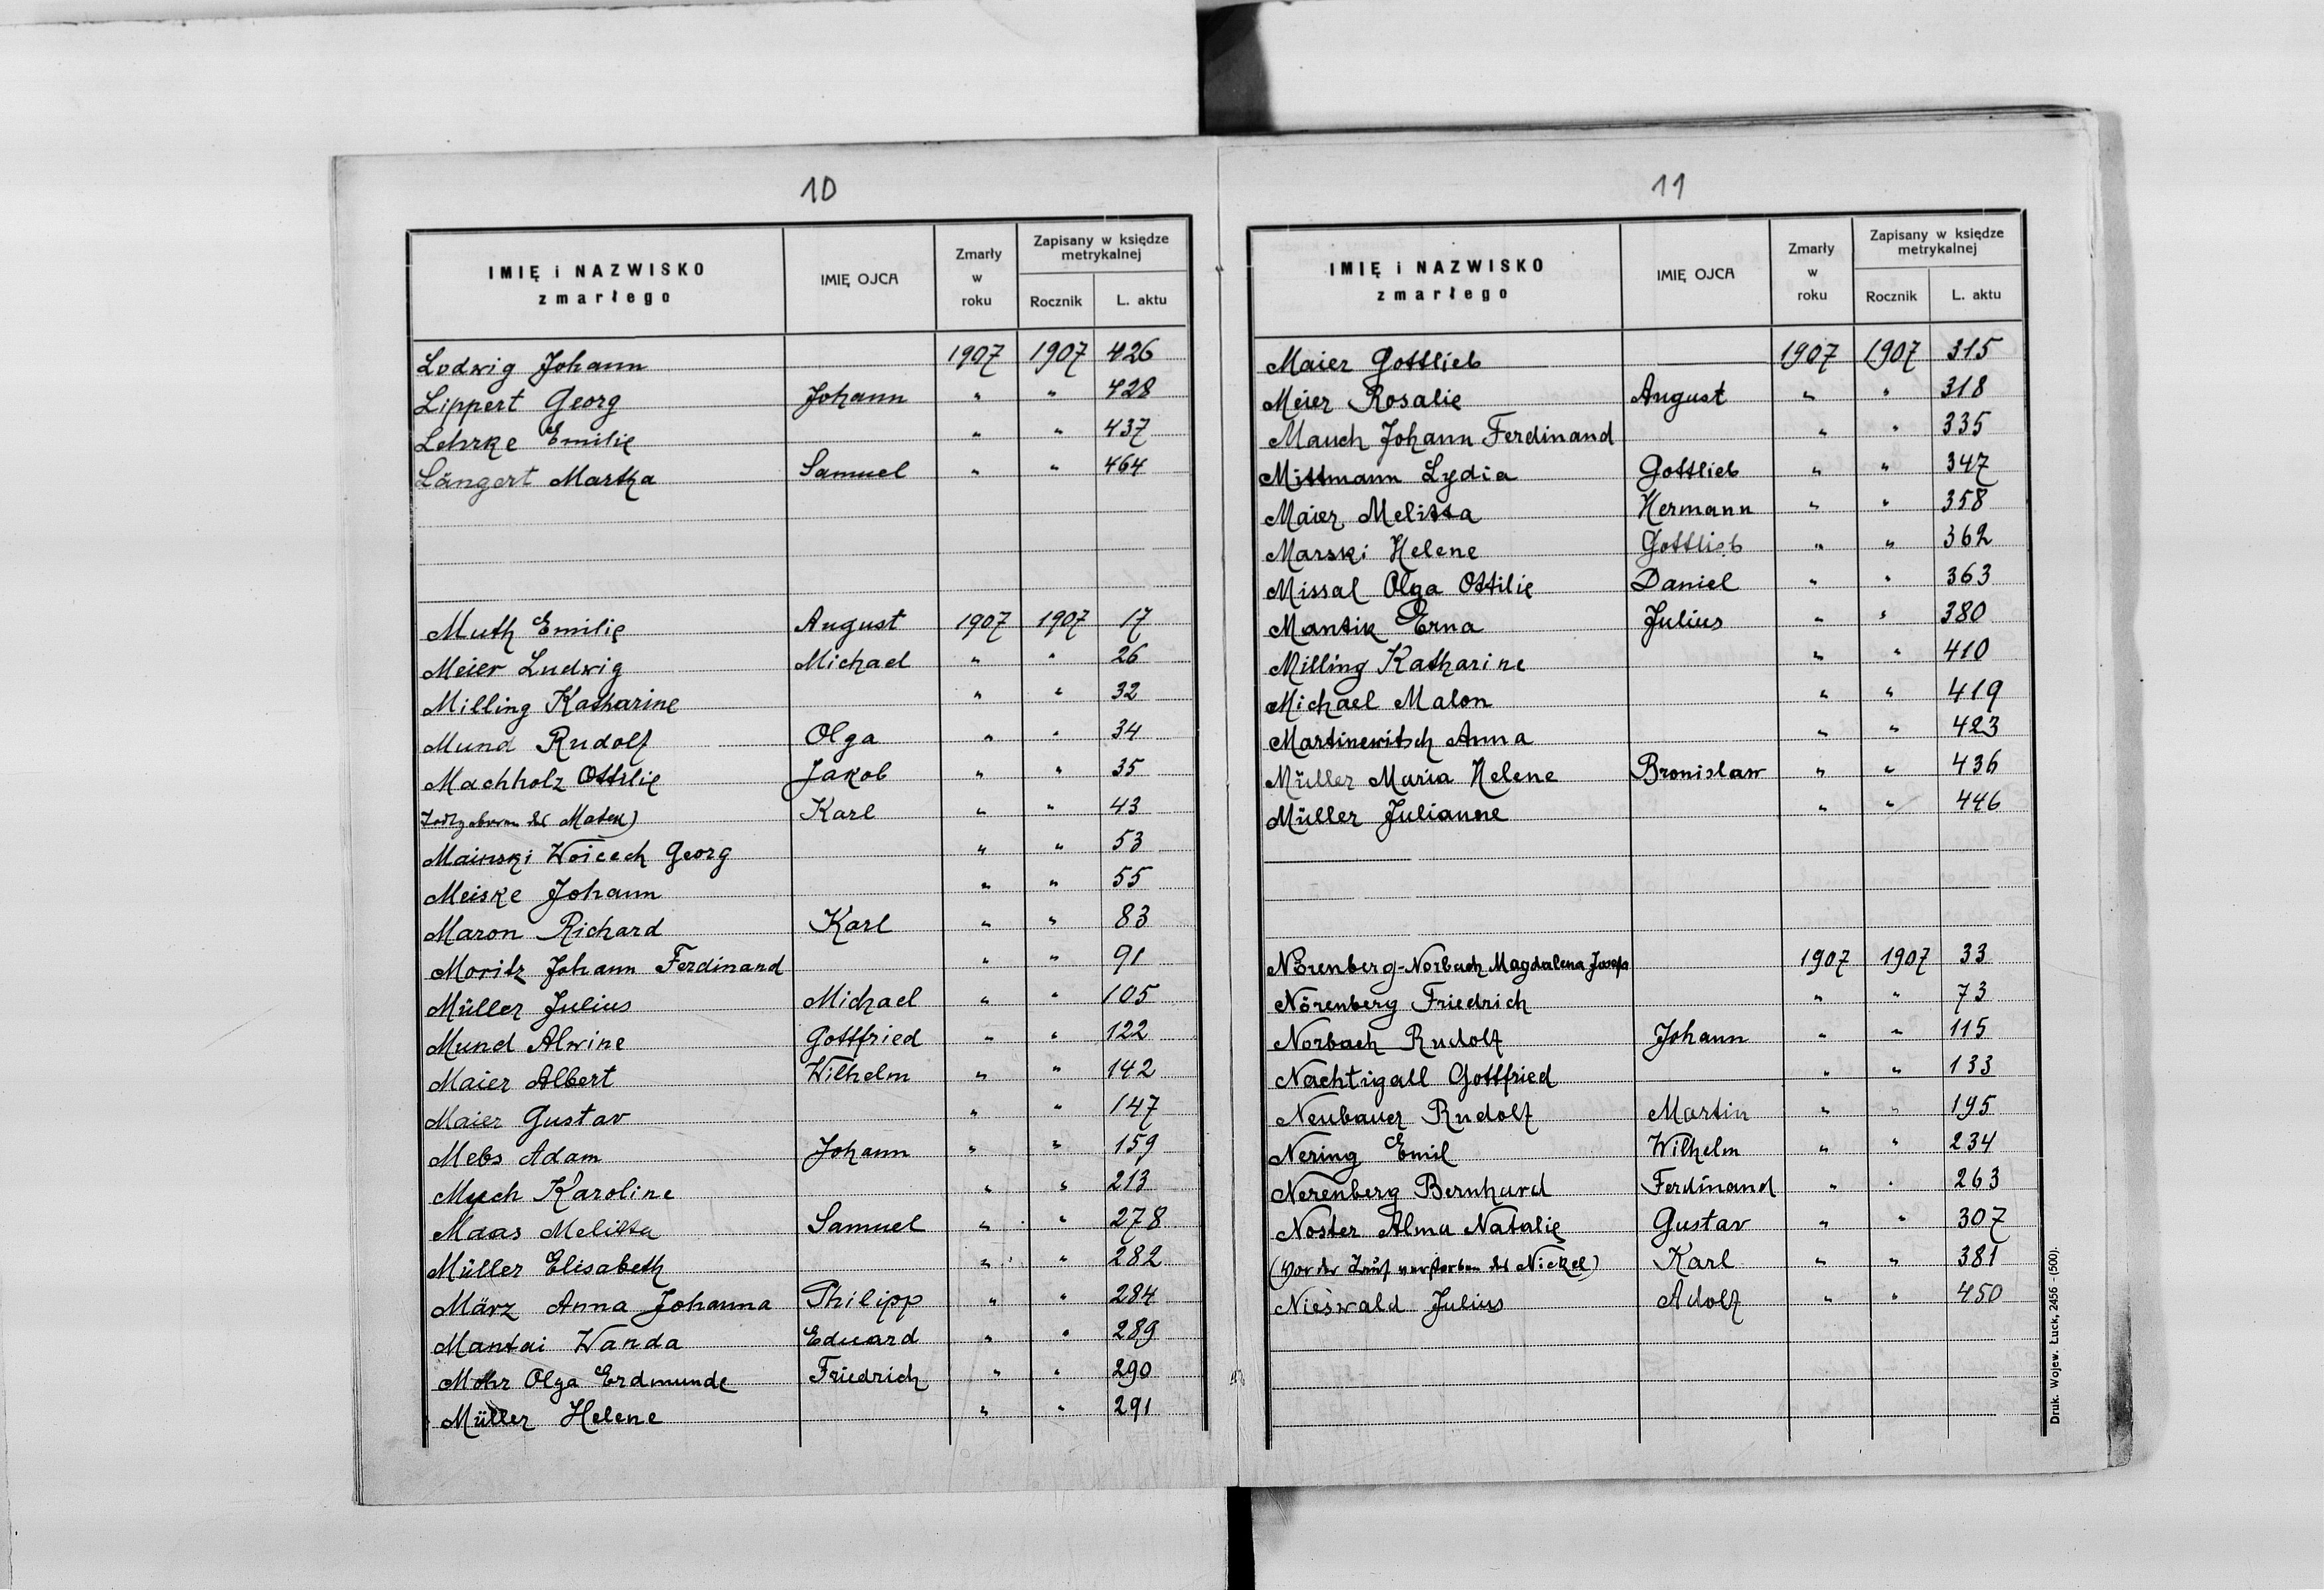 10
IMIĘ i NAZWISKO zmarłego | IMIĘ OJCA | Zmarły w roku | Zapisany w księdze metrykalnej
Rocznik | L. aktu
Ludwig Johann 1907 1907 426
Lippert Georg Johann " " 428
Lehrke Emilie " " 437
Längert Martha Samuel " " 464
Muth Emilie August 1907 1907 17
Meier Ludwig Michael " " 26
Milling Katharine " " 32
Mund Rudolf Olga " " 34
Machholz Ottilie Jakob " " 35
Karl " " 43
Mainski Woicech Georg " " 53
Meiske Johann " " 55
Maron Richard Karl " " 83
Moritz Johann Ferdinand " " 91
Müller Julius Michael " " 105
Mund Alwine Gottfried " " 122
Maier Albert Wilhelm " " 142
Maier Gustav " " 147
Mebs Adam Johann " " 159
Much Karoline " " 213
Maas Melitta Samuel " " 278
Müller Elisabeth " " 282
März Anna Johanna Philipp " " 284
Mantai Wanda Eduard " " 289
Mohr Olga Erdmunde Friedrich " " 290
Müller Helene " " 291
11
IMIĘ i NAZWISKO zmarłego | IMIĘ OJCA | Zmarły w roku | Zapisany w księdze metrykalnej
Rocznik | L. aktu
Maier Gottlieb 1907 1907 315
Meier Rosalie August " " 318
Mauch Johann Ferdinand " " 335
Mittmann Lydia Gottlieb " " 347
Maier Melitta Hermann " " 358
Marski Helene Gottlieb " " 362
Missal Olga Ottilie Daniel " " 363
Mantik Erna Julius " " 380
Milling Katharine " " 410
Michael Malon " " 419
Martinewitsch Anna " " 423
Müller Maria Helene Bronislaw " " 436
Müller Julianne " " 446
Nörenberg-Norbach Magdalena 1907 1907 33
Nörenberg Friedrich " " 73
Norbach Rudolf Johann " " 115
Nachtigall Gottfried " " 133
Neubauer Rudolf Martin " " 195
Nering Emil Wilhelm " " 234
Nerenberg Bernhard Ferdinand " " 263
Noster Alma Natalie Gustav " " 307
(vor der Taufe verstorben des Nickel) Karl " " 381
Nieswald Julius Adolf " " 450
Druk. Wojew. Łuck, 2456 - (500).